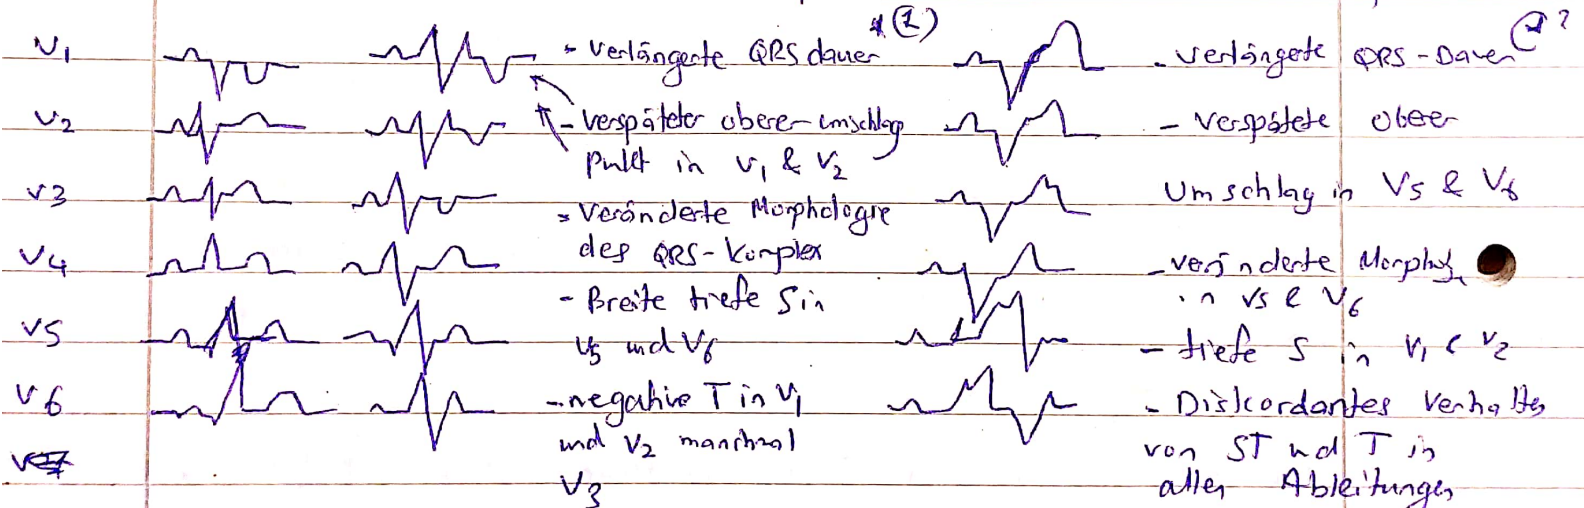 V1
V2
V3
V4
V5
V6
(1)
- Verlängerte QRS dauer
- Verspäteter oberer umschlag
in V1 & V2
- Veränderte Morphologie
des QRS-Komplex
- Breite tiefe S in
V5 und V6
- negative T in V1
und V2 manchmal
V3
?
- Verlängerte QRS-Dauer
- Verspätete oberer
Umschlag in V5 & V6
- veränderte Morphol.
in V5 & V6
- tiefe S in V1 & V2
- Diskordantes Verhalten
von ST und T in
allen Ableitungen